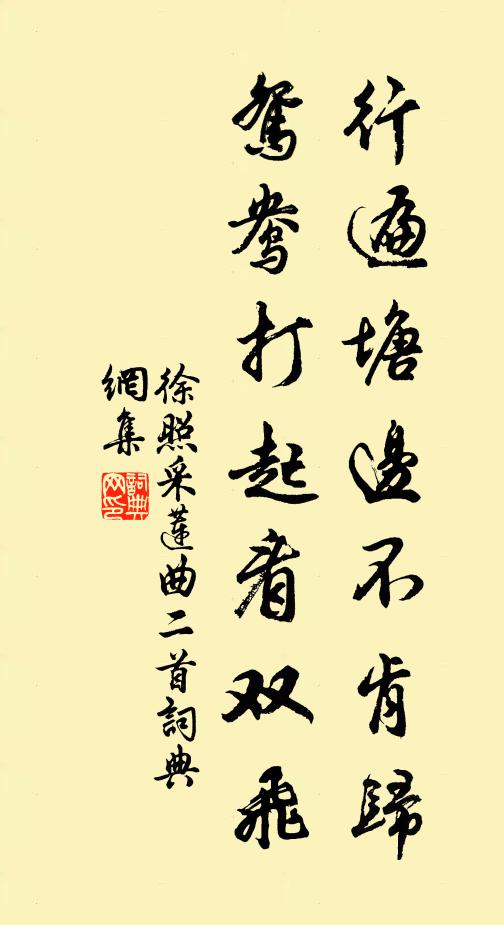 行遍塘邊不肯歸
鴛鴦打起看双飛
徐照采蓮曲二首詞典
網集
詞典
网印